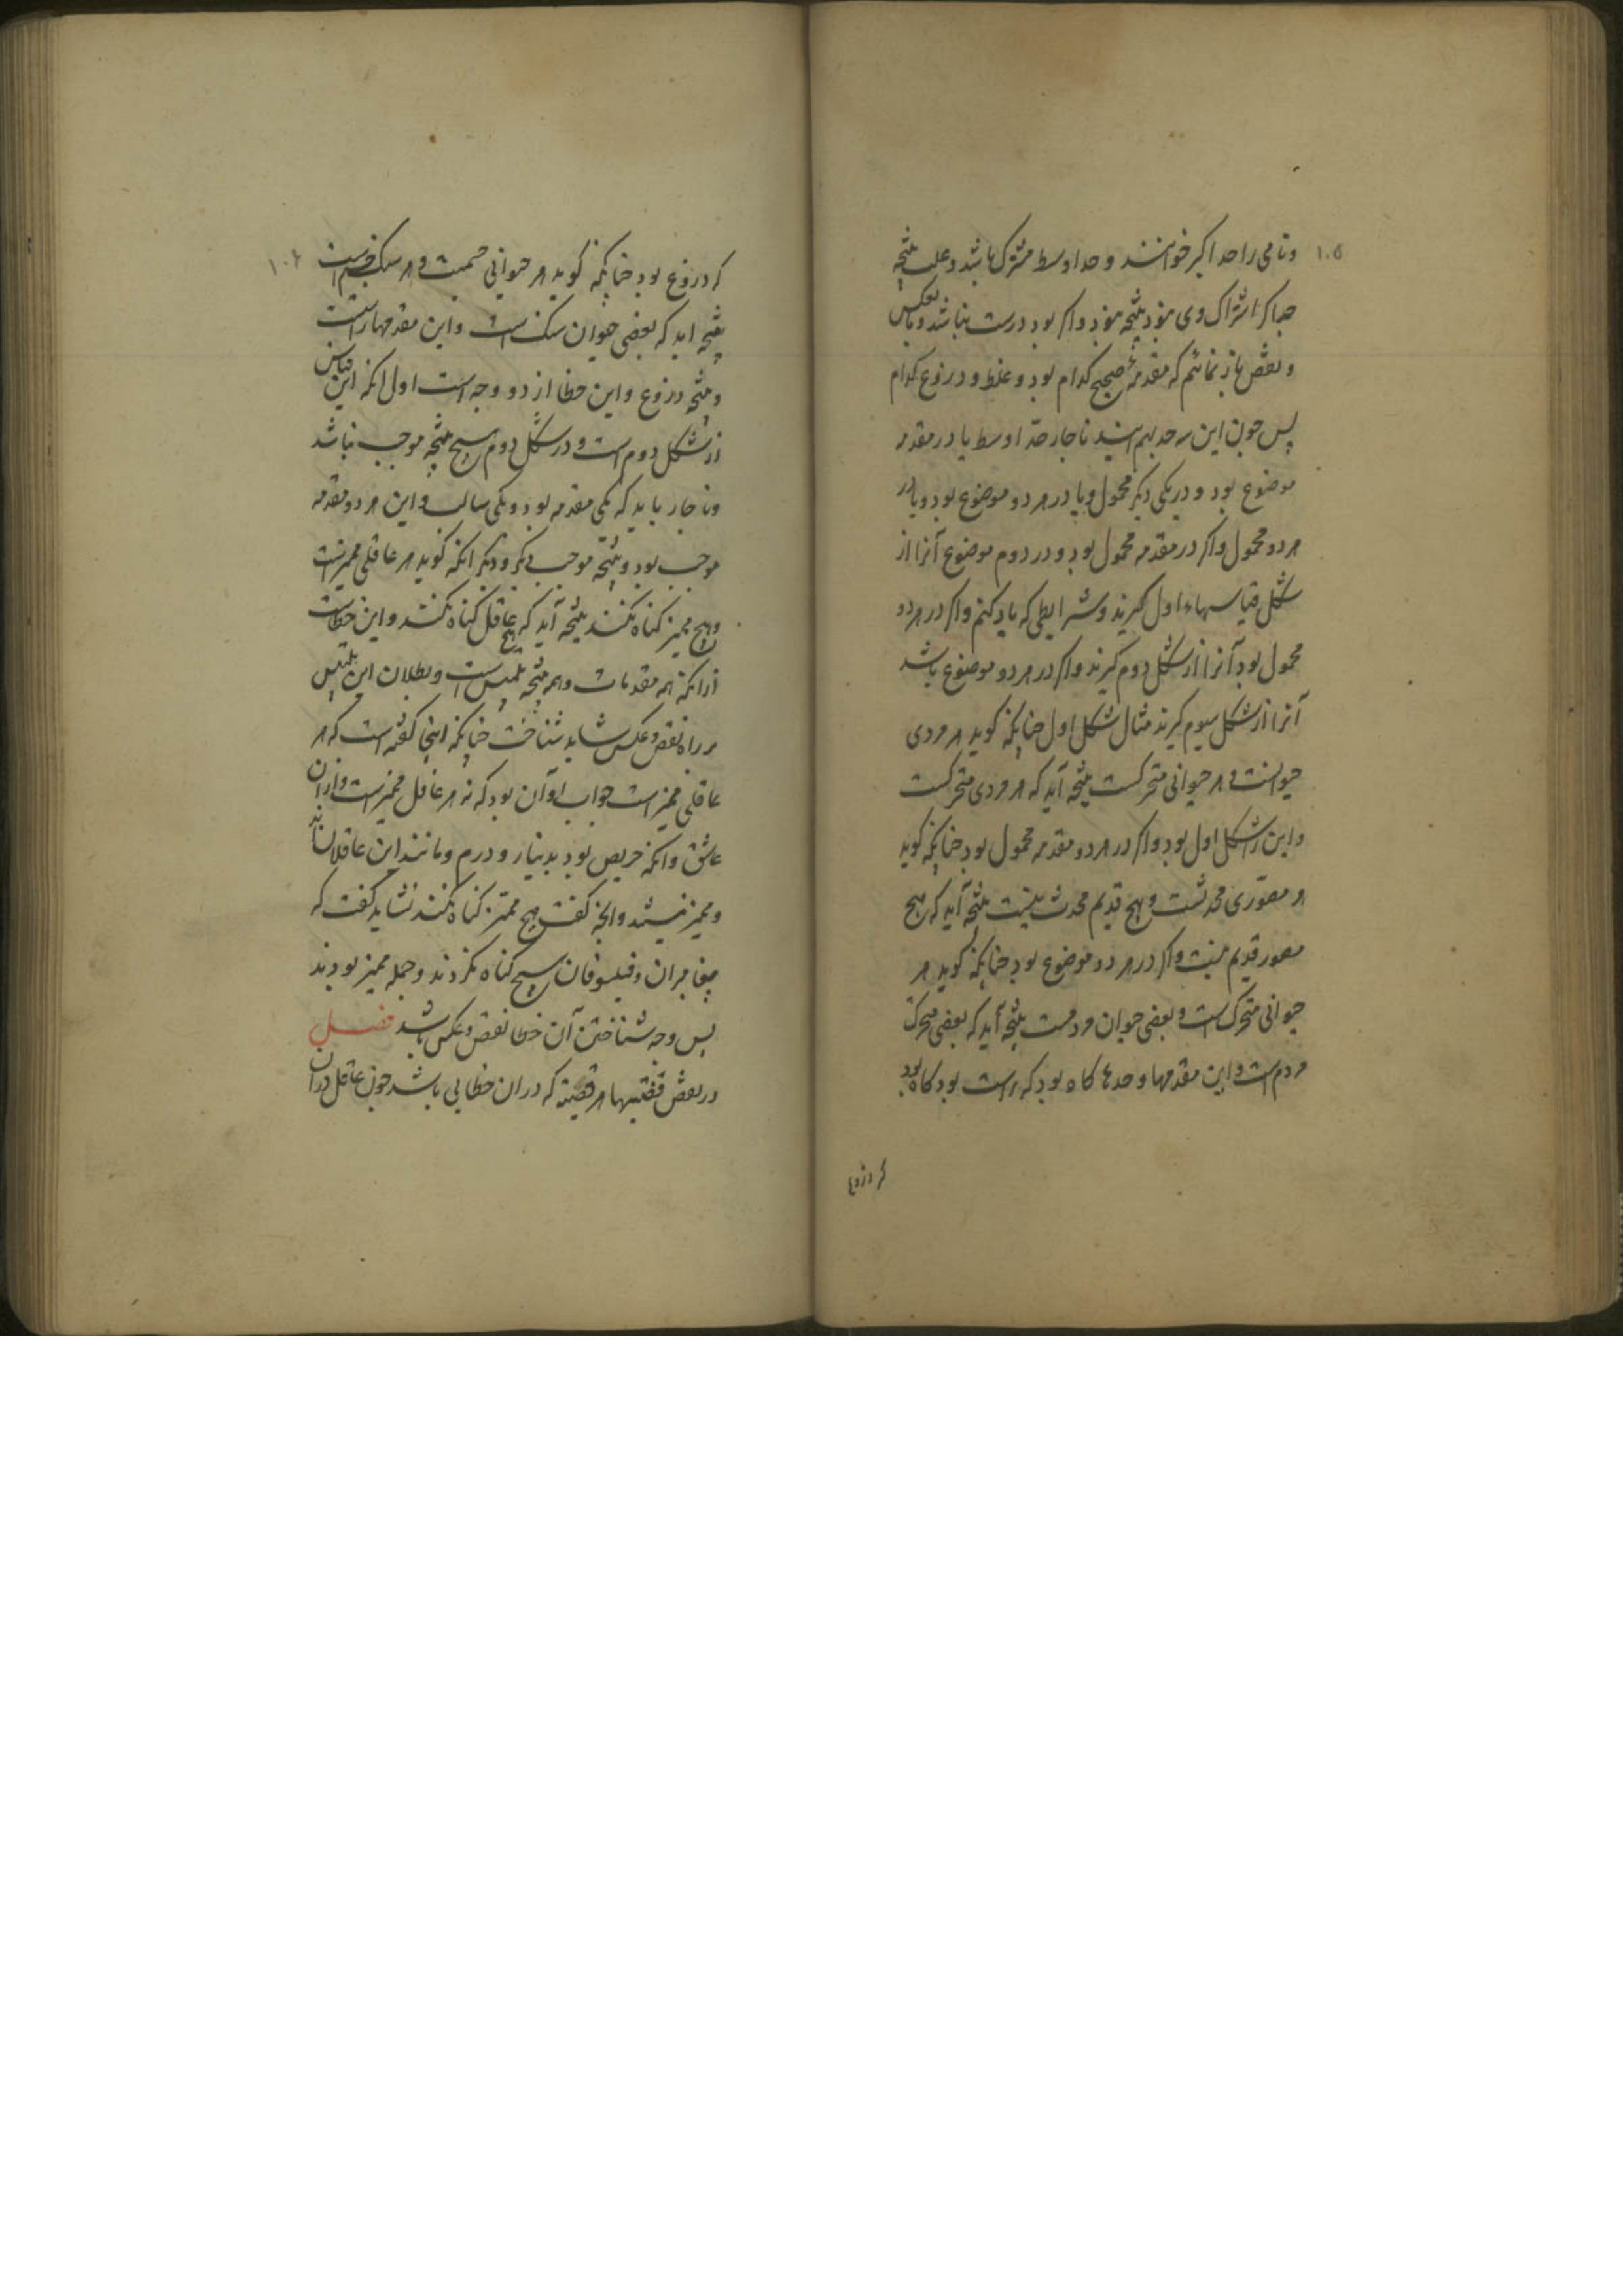 ۱۰۵
ونامی را حد اکبر خوانند و حد اوسط مشترک باشد و علت نتیجه
جه اکر اشتراک وی نبود نتیجه نبود واکر بود درست نباشد وبعکس
و نقض باز نمائیم که مقدمهٔ صحیح کدام بود و غلط و دروغ کدام
پس چون این سه حد بهم ایند ناجار حدّ اوسط یا در مقدمه
موضوع بود و در یکی دیکر محمول ویا در هر دو موضوع بود ویا در
هر دو محمول واکر در مقدمه محمول بود و در دوم موضوع آنرا از
شکل قیاسهاء اول کیرند وشرایطی که یاد کنم واکر در هر دو
محمول بود آنرا از شکل دوم کیرند واکر در هر دو موضوع باشد
آنرا از شکل سیوم کیرند مثال شکل اول چنانکه کوید هر مردی
حیوانست و هر حیوانی متحرکست نتیجه آید که هر مردی متحرکست
واین از شکل اول بود واکر در هر دو مقدمه محمول بود چنانکه کوید
هر مصوّری محدثست وهیچ قدیم محدث نیست نتیجه آید که هیچ
مصور قدیم نیست واکر در هر دو موضوع بود چنانکه کوید هر
حیوانی متحرک است و بعضی حیوان مردمست نتیجه آید که بعضی متحرک
مردم است واین مقدمها وحدها کاه بود که راست بود کاه بود
که دروغ
۱۰۶
که دروغ بود چنانکه کوید هر حیوانی جسمیست و هر سنک جسم است
نتیجه اید که بعضی حیوان سنک است واین مقدمها راستست
ونتیجه دروغ واین خطا از دو وجه است اول انکه این قیاس
از شکل دوم است ودر شکل دوم هیچ نتیجه موجب نباشد
وناجار باید که یکی مقدمه بود ویکی سالب واین هر دو مقدمه
موجب بود ونتیجه موجب دیکر ودیکر انکه کوید هر عاقلی ممیزیست
وهیچ ممیز کناه نکند نتیجه آید که هیچ عاقل کناه نکند واین خطاست
ازانکه همه مقدمات وهم نتیجه ملتبس است وبطلان این تلبیس
بر راه نقض وعکس شاید شناخت چنانکه اینجا کفته است که هر
عاقلی ممیز است جواب او آن بود که نه هر عاقل ممیز است وازان
عاشق وانکه حریص بود بدینار ودرم ومانند این عاقلانند
وممیز نیستند وانجه کفت هیچ ممیز کناه نکند نشاید کفت که
پیغامبران وفیلسوفان هیچ کناه نکردند وجمله ممیز بودند
پس وجه شناختن آن خطا نقض وعکس باشد فصل
در نقض قضیتها هر قضیّه که دران خطایی باشد چون عاقل دران